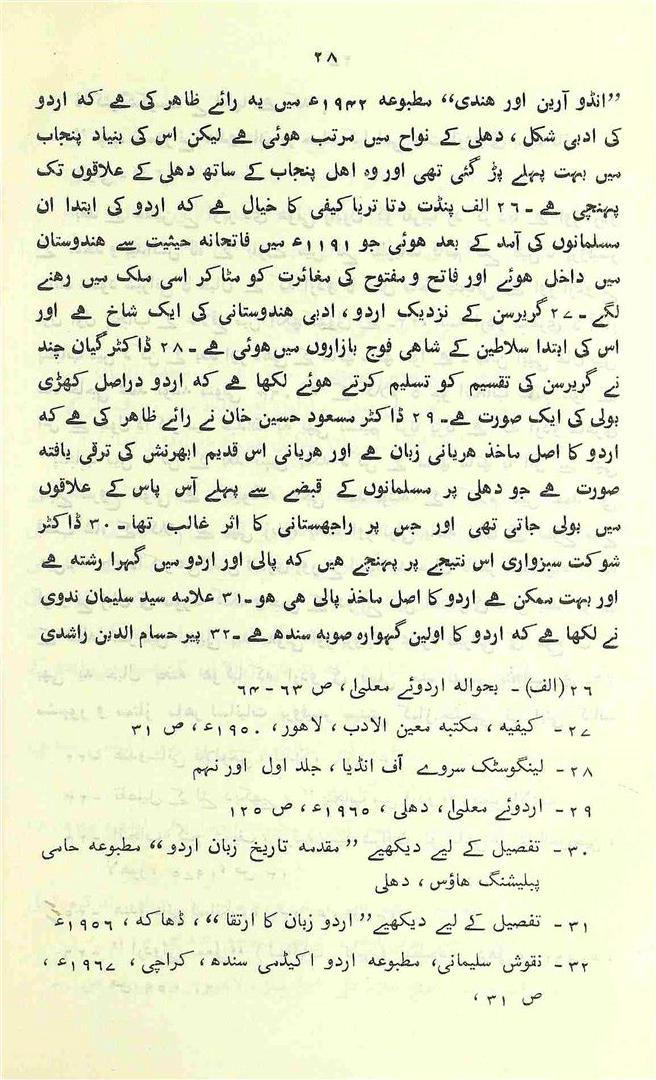 ۲۸
”انڈو آرین اور ھندی“ مطبوعہ ۱۹۴۲ء میں یہ رائے ظاھر کی ہے کہ اردو
کی ادبی شکل، دھلی کے نواح میں مرتب ھوئی ہے لیکن اس کی بنیاد پنجاب
میں بہت پہلے پڑ گئی تھی اور وہ اھل پنجاب کے ساتھ دھلی کے علاقوں تک
پہنچی ہے ۔ ۲۶ الف پنڈت دتا تریا کیفی کا خیال ہے کہ اردو کی ابتدا ان
مسلمانوں کی آمد کے بعد ھوئی جو ۱۱۹۱ء میں فاتحانہ حیثیت سے ھندوستان
میں داخل ھوئے اور فاتح و مفتوح کی مغائرت کو مٹا کر اسی ملک میں رھنے
لگے ۔ ۲۷ گریرسن کے نزدیک اردو، ادبی ھندوستانی کی ایک شاخ ہے اور
اس کی ابتدا سلاطین کے شاھی فوج بازاروں میں ھوئی ہے ۔ ۲۸ ڈاکٹر گیان چند
نے گریرسن کی تقسیم کو تسلیم کرتے ھوئے لکھا ہے کہ اردو دراصل کھڑی
بولی کی ایک صورت ہے ۔ ۲۹ ڈاکٹر مسعود حسین خان نے رائے ظاھر کی ہے کہ
اردو کا اصل ماخذ ھریانی زبان ہے اور ھریانی اس قدیم ابھرنش کی ترقی یافتہ
صورت ہے جو دھلی پر مسلمانوں کے قبضے سے پہلے آس پاس کے علاقوں
میں بولی جاتی تھی اور جس پر راجھستانی کا اثر غالب تھا ۔ ۳۰ ڈاکٹر
شوکت سبزواری اس نتیجے پر پہنچے ھیں کہ پالی اور اردو میں گہرا رشتہ ہے
اور بہت ممکن ہے اردو کا اصل ماخذ پالی ھی ھو ۔ ۳۱ علامہ سید سلیمان ندوی
نے لکھا ہے کہ اردو کا اولین گہوارہ صوبہ سندھ ہے ۔ ۳۲ پیر حسام الدین راشدی
۲۶ (الف) ۔ بحوالہ اردوئے معلیٰ، ص ۶۳ - ۶۴
۲۷ ۔ کیفیہ، مکتبہ معین الادب، لاھور، ۱۹۵۰ء، ص ۳۱
۲۸ ۔ لینگوسٹک سروے آف انڈیا، جلد اول اور نہم
۲۹ ۔ اردوئے معلیٰ، دھلی، ۱۹۶۵ء، ص ۱۲۵
۳۰ ۔ تفصیل کے لیے دیکھیے ”مقدمہ تاریخ زبان اردو“ مطبوعہ حامی
پبلیشنگ ھاؤس، دھلی
۳۱ ۔ تفصیل کے لیے دیکھیے ”اردو زبان کا ارتقا“، ڈھاکہ، ۱۹۵۶ء
۳۲ ۔ نقوش سلیمانی، مطبوعہ اردو اکیڈمی سندھ، کراچی، ۱۹۶۷ء،
ص ۳۱،